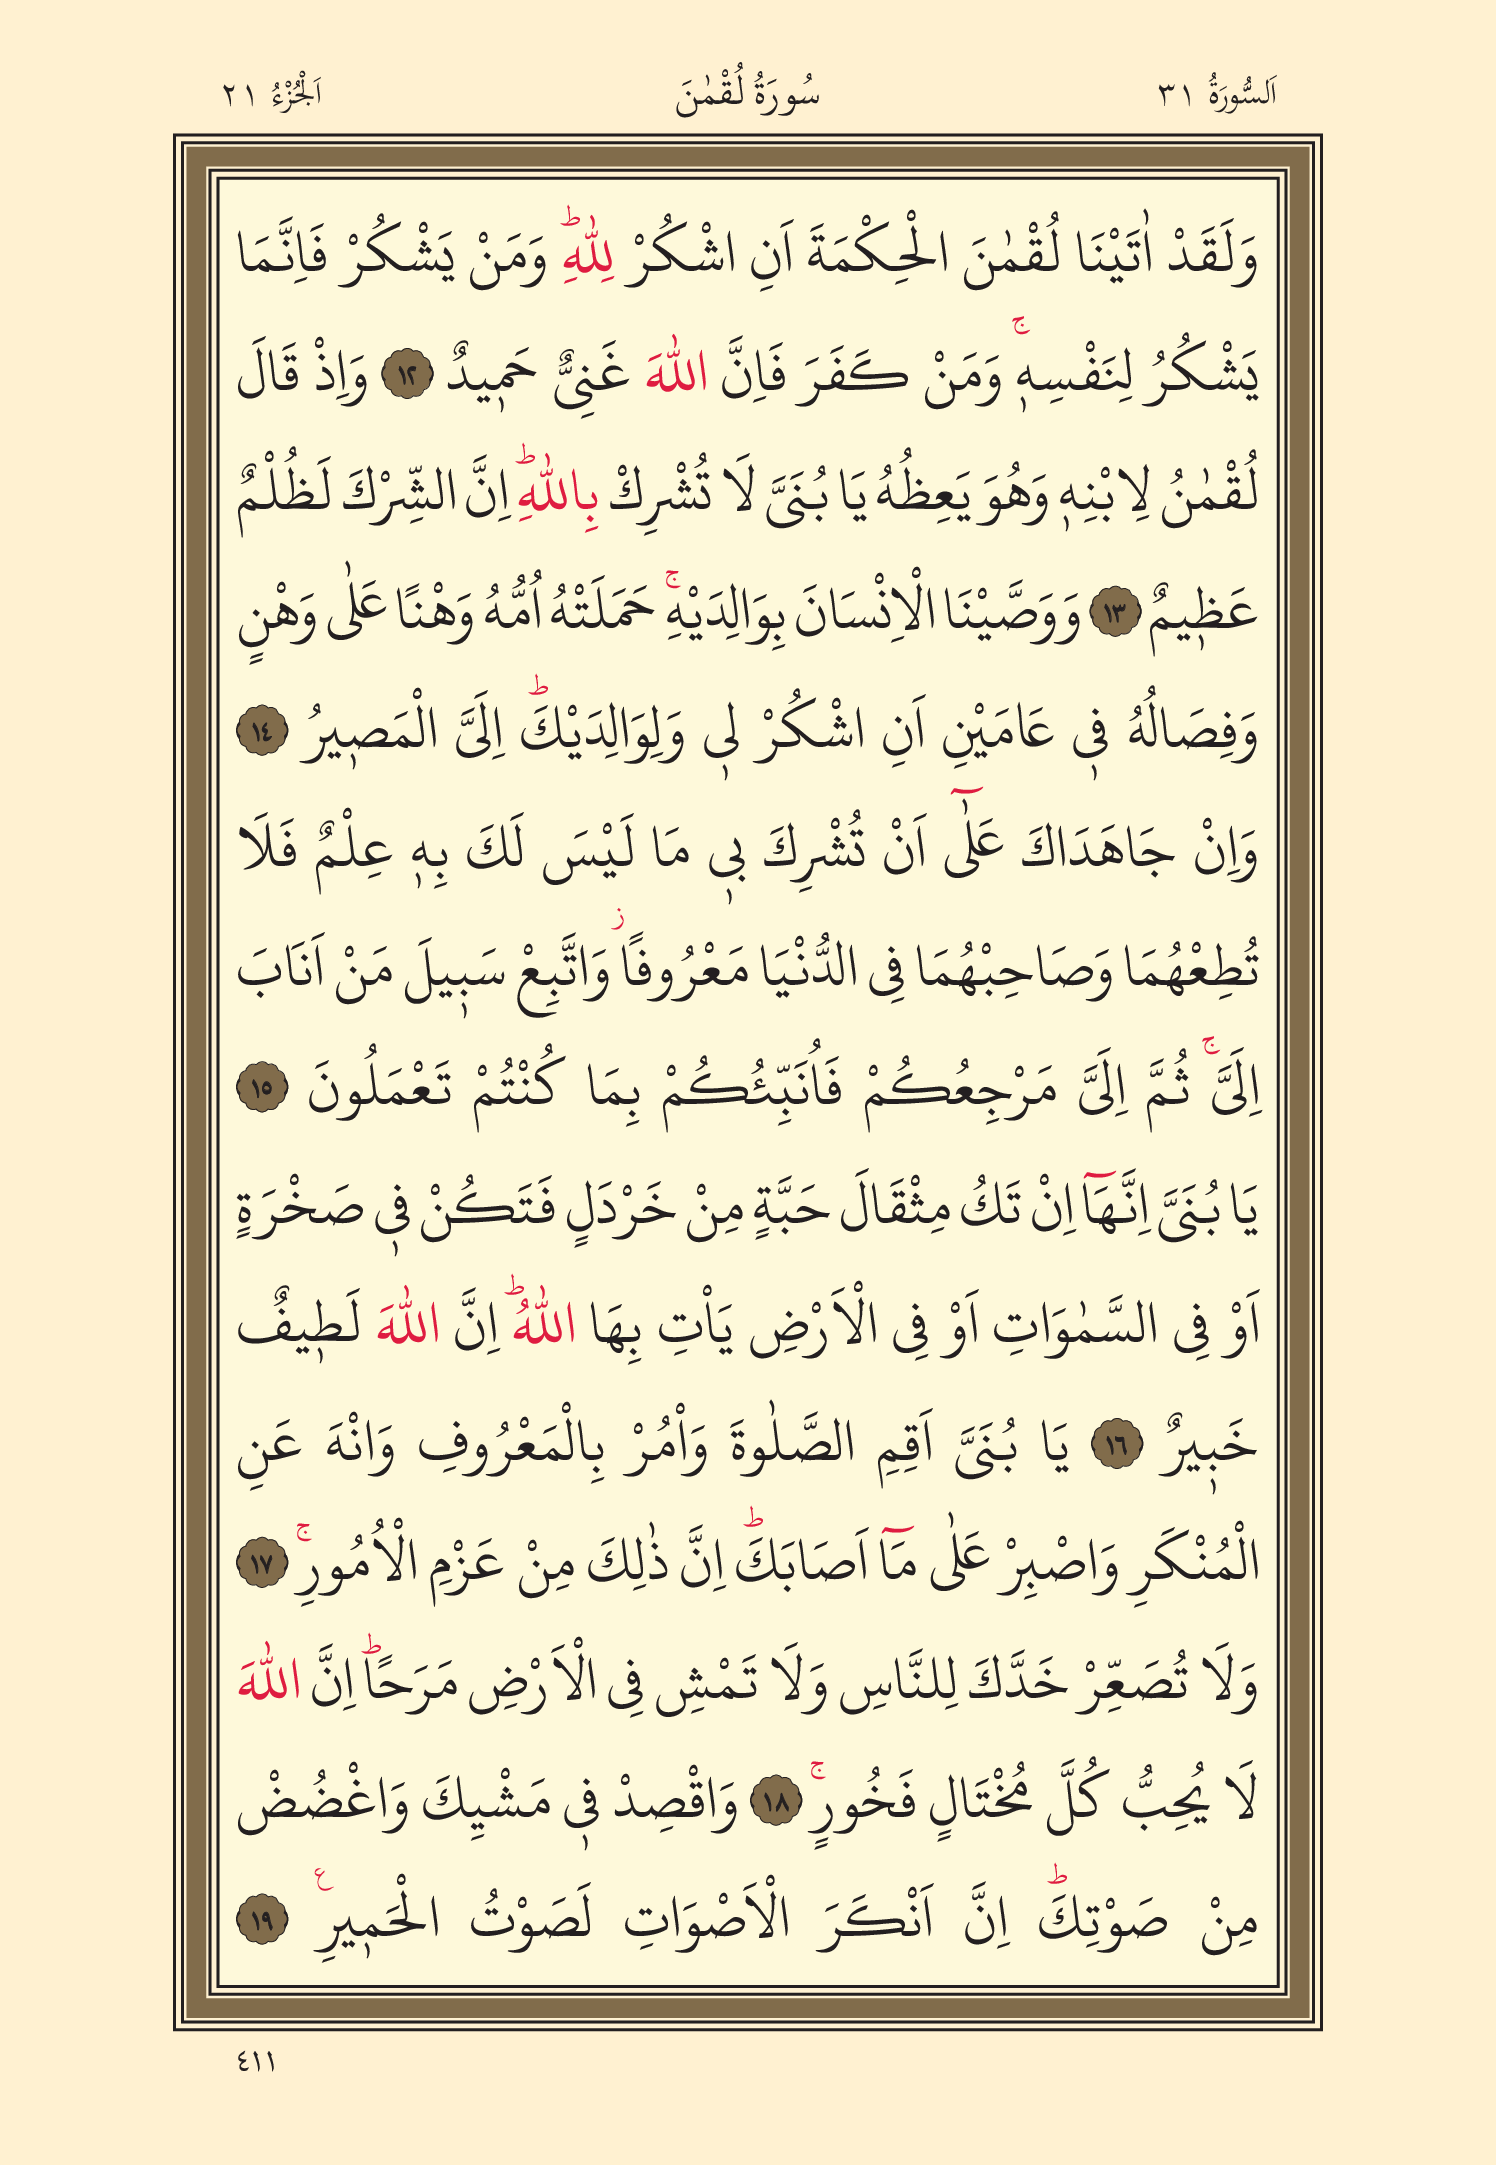 اَلسُّورَةُ ٣١ سُورَةُ لُقْمٰنَ اَلْجُزْءُ ٢١
وَلَقَدْ اٰتَيْنَا لُقْمٰنَ الْحِكْمَةَ اَنِ اشْكُرْ لِلّٰهِؕ وَمَنْ يَشْكُرْ فَاِنَّمَا
يَشْكُرُ لِنَفْسِهٖۚ وَمَنْ كَفَرَ فَاِنَّ اللّٰهَ غَنِىٌّ حَمٖيدٌ ﴿١٢﴾ وَاِذْ قَالَ
لُقْمٰنُ لِابْنِهٖ وَهُوَ يَعِظُهُ يَا بُنَىَّ لَا تُشْرِكْ بِاللّٰهِؕ اِنَّ الشِّرْكَ لَظُلْمٌ
عَظٖيمٌ ﴿١٣﴾ وَوَصَّيْنَا الْاِنْسَانَ بِوَالِدَيْهِۚ حَمَلَتْهُ اُمُّهُ وَهْنًا عَلٰى وَهْنٍ
وَفِصَالُهُ فٖى عَامَيْنِ اَنِ اشْكُرْ لٖى وَلِوَالِدَيْكَؕ اِلَىَّ الْمَصٖيرُ ﴿١٤﴾
وَاِنْ جَاهَدَاكَ عَلٰٓى اَنْ تُشْرِكَ بٖى مَا لَيْسَ لَكَ بِهٖ عِلْمٌ فَلَا
تُطِعْهُمَا وَصَاحِبْهُمَا فِى الدُّنْيَا مَعْرُوفًاؗ وَاتَّبِعْ سَبٖيلَ مَنْ اَنَابَ
اِلَىَّۚ ثُمَّ اِلَىَّ مَرْجِعُكُمْ فَاُنَبِّئُكُمْ بِمَا كُنْتُمْ تَعْمَلُونَ ﴿١٥﴾
يَا بُنَىَّ اِنَّهَٓا اِنْ تَكُ مِثْقَالَ حَبَّةٍ مِنْ خَرْدَلٍ فَتَكُنْ فٖى صَخْرَةٍ
اَوْ فِى السَّمٰوَاتِ اَوْ فِى الْاَرْضِ يَاْتِ بِهَا اللّٰهُؕ اِنَّ اللّٰهَ لَطٖيفٌ
خَبٖيرٌ ﴿١٦﴾ يَا بُنَىَّ اَقِمِ الصَّلٰوةَ وَاْمُرْ بِالْمَعْرُوفِ وَانْهَ عَنِ
الْمُنْكَرِ وَاصْبِرْ عَلٰى مَٓا اَصَابَكَؕ اِنَّ ذٰلِكَ مِنْ عَزْمِ الْاُمُورِۚ ﴿١٧﴾
وَلَا تُصَعِّرْ خَدَّكَ لِلنَّاسِ وَلَا تَمْشِ فِى الْاَرْضِ مَرَحًاؕ اِنَّ اللّٰهَ
لَا يُحِبُّ كُلَّ مُخْتَالٍ فَخُورٍۚ ﴿١٨﴾ وَاقْصِدْ فٖى مَشْيِكَ وَاغْضُضْ
مِنْ صَوْتِكَؕ اِنَّ اَنْكَرَ الْاَصْوَاتِ لَصَوْتُ الْحَمٖيرِ ع ﴿١٩﴾
٤١١